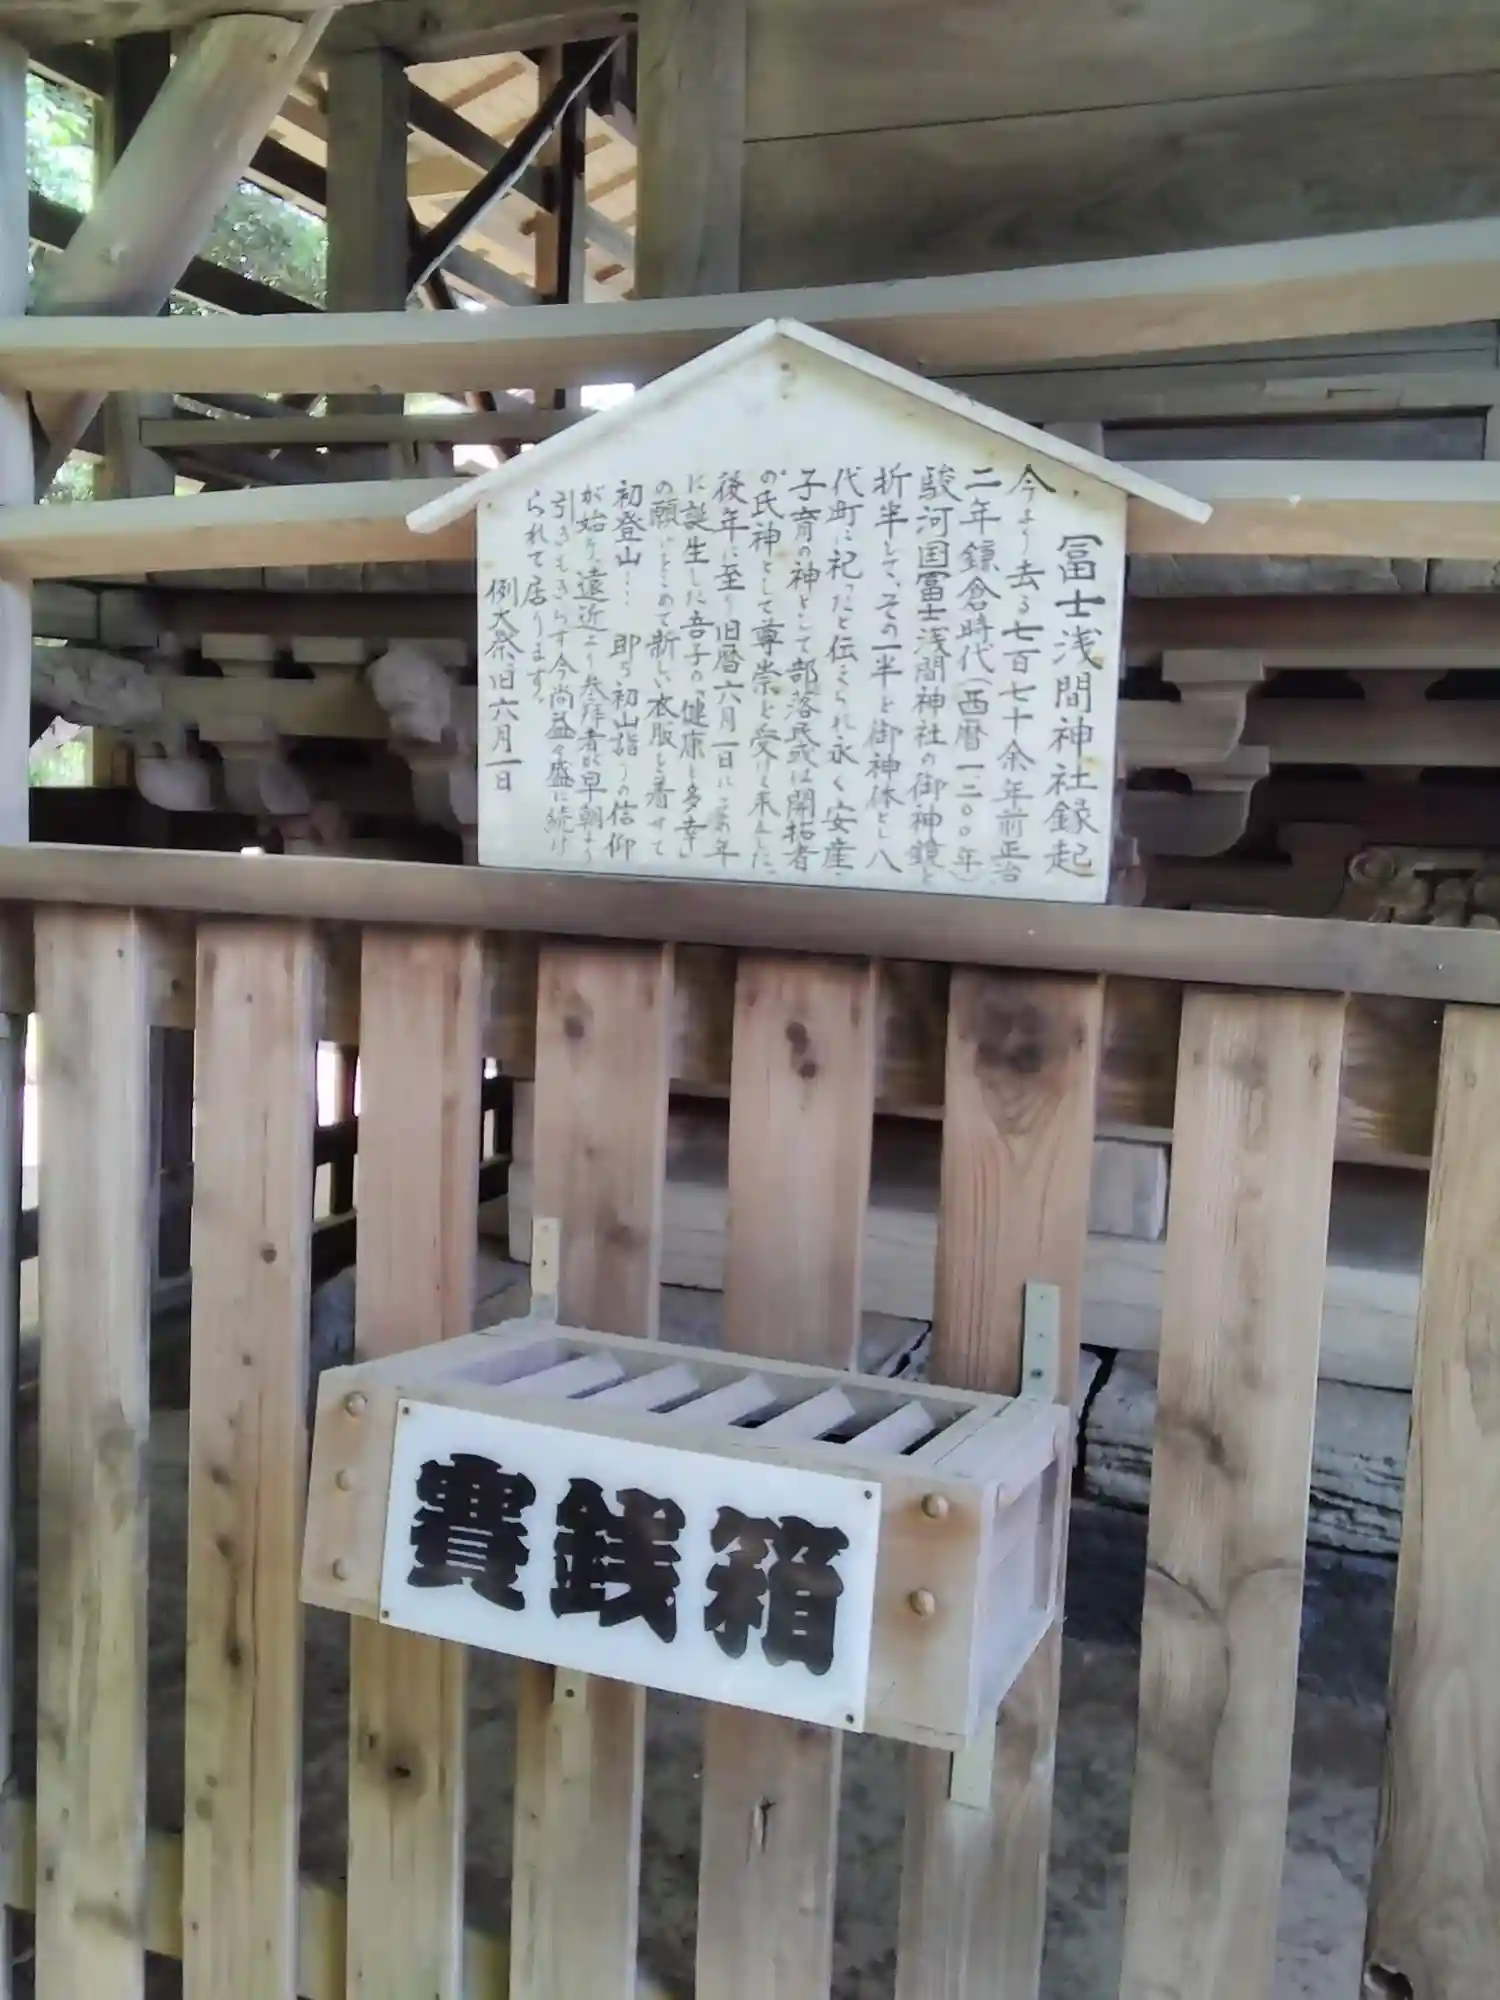 冨士浅間神社録起
今より去る七百七十余年前正治
二年鎌倉時代(西暦一二〇〇年)
駿河国冨士浅間神社の御神鏡を
折半して、その一半を御神体とし八
代町に祀ったと伝えられ永く安産・
子育の神として部落民或は開拓者
の氏神として尊崇を受けて来ました。
後年に至り旧暦六月一日にこの年
に誕生した吾子の「健康と多幸」
の願いをこめて新しい衣服を着せて
初登山…即ち初山詣りの信仰
が始り、遠近より参拝者が早朝より
引きもきらず今尚益々盛に続け
られて居ります。
例大祭、旧六月一日
賽銭箱